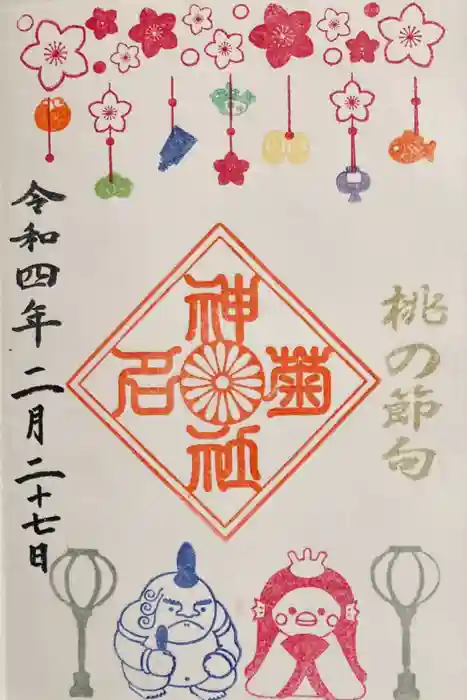 桃の節句
菊名
神社
令和四年二月二十七日